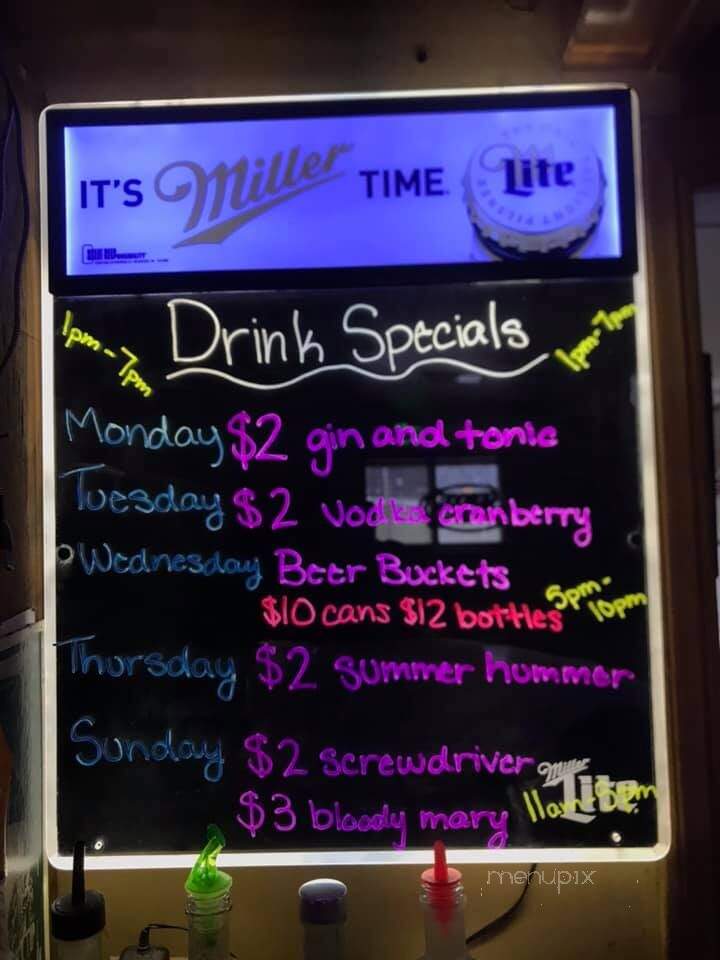 IT'S Miller TIME Lite
Drink Specials
1pm-7pm
1pm-7pm
Monday $2 gin and tonic
Tuesday $2 vodka cranberry
Wednesday Beer Buckets
$10 cans $12 bottles 5pm-10pm
Thursday $2 summer hummer
Sunday $2 screwdriver
$3 bloody mary 11am-5pm
Miller Lite
menupix